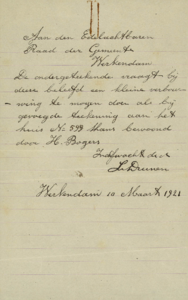 Aan den Edelachtbaren
Raad der Gemeente
Werkendam
De ondergeteekende vraagt bij
deze beleefd een kleine verbouw-
wing te mogen doen als bij
gevoegde teekening aan het
huis No 599 thans bewoond
door H. Bogers
Werkendam 10 Maart 1921